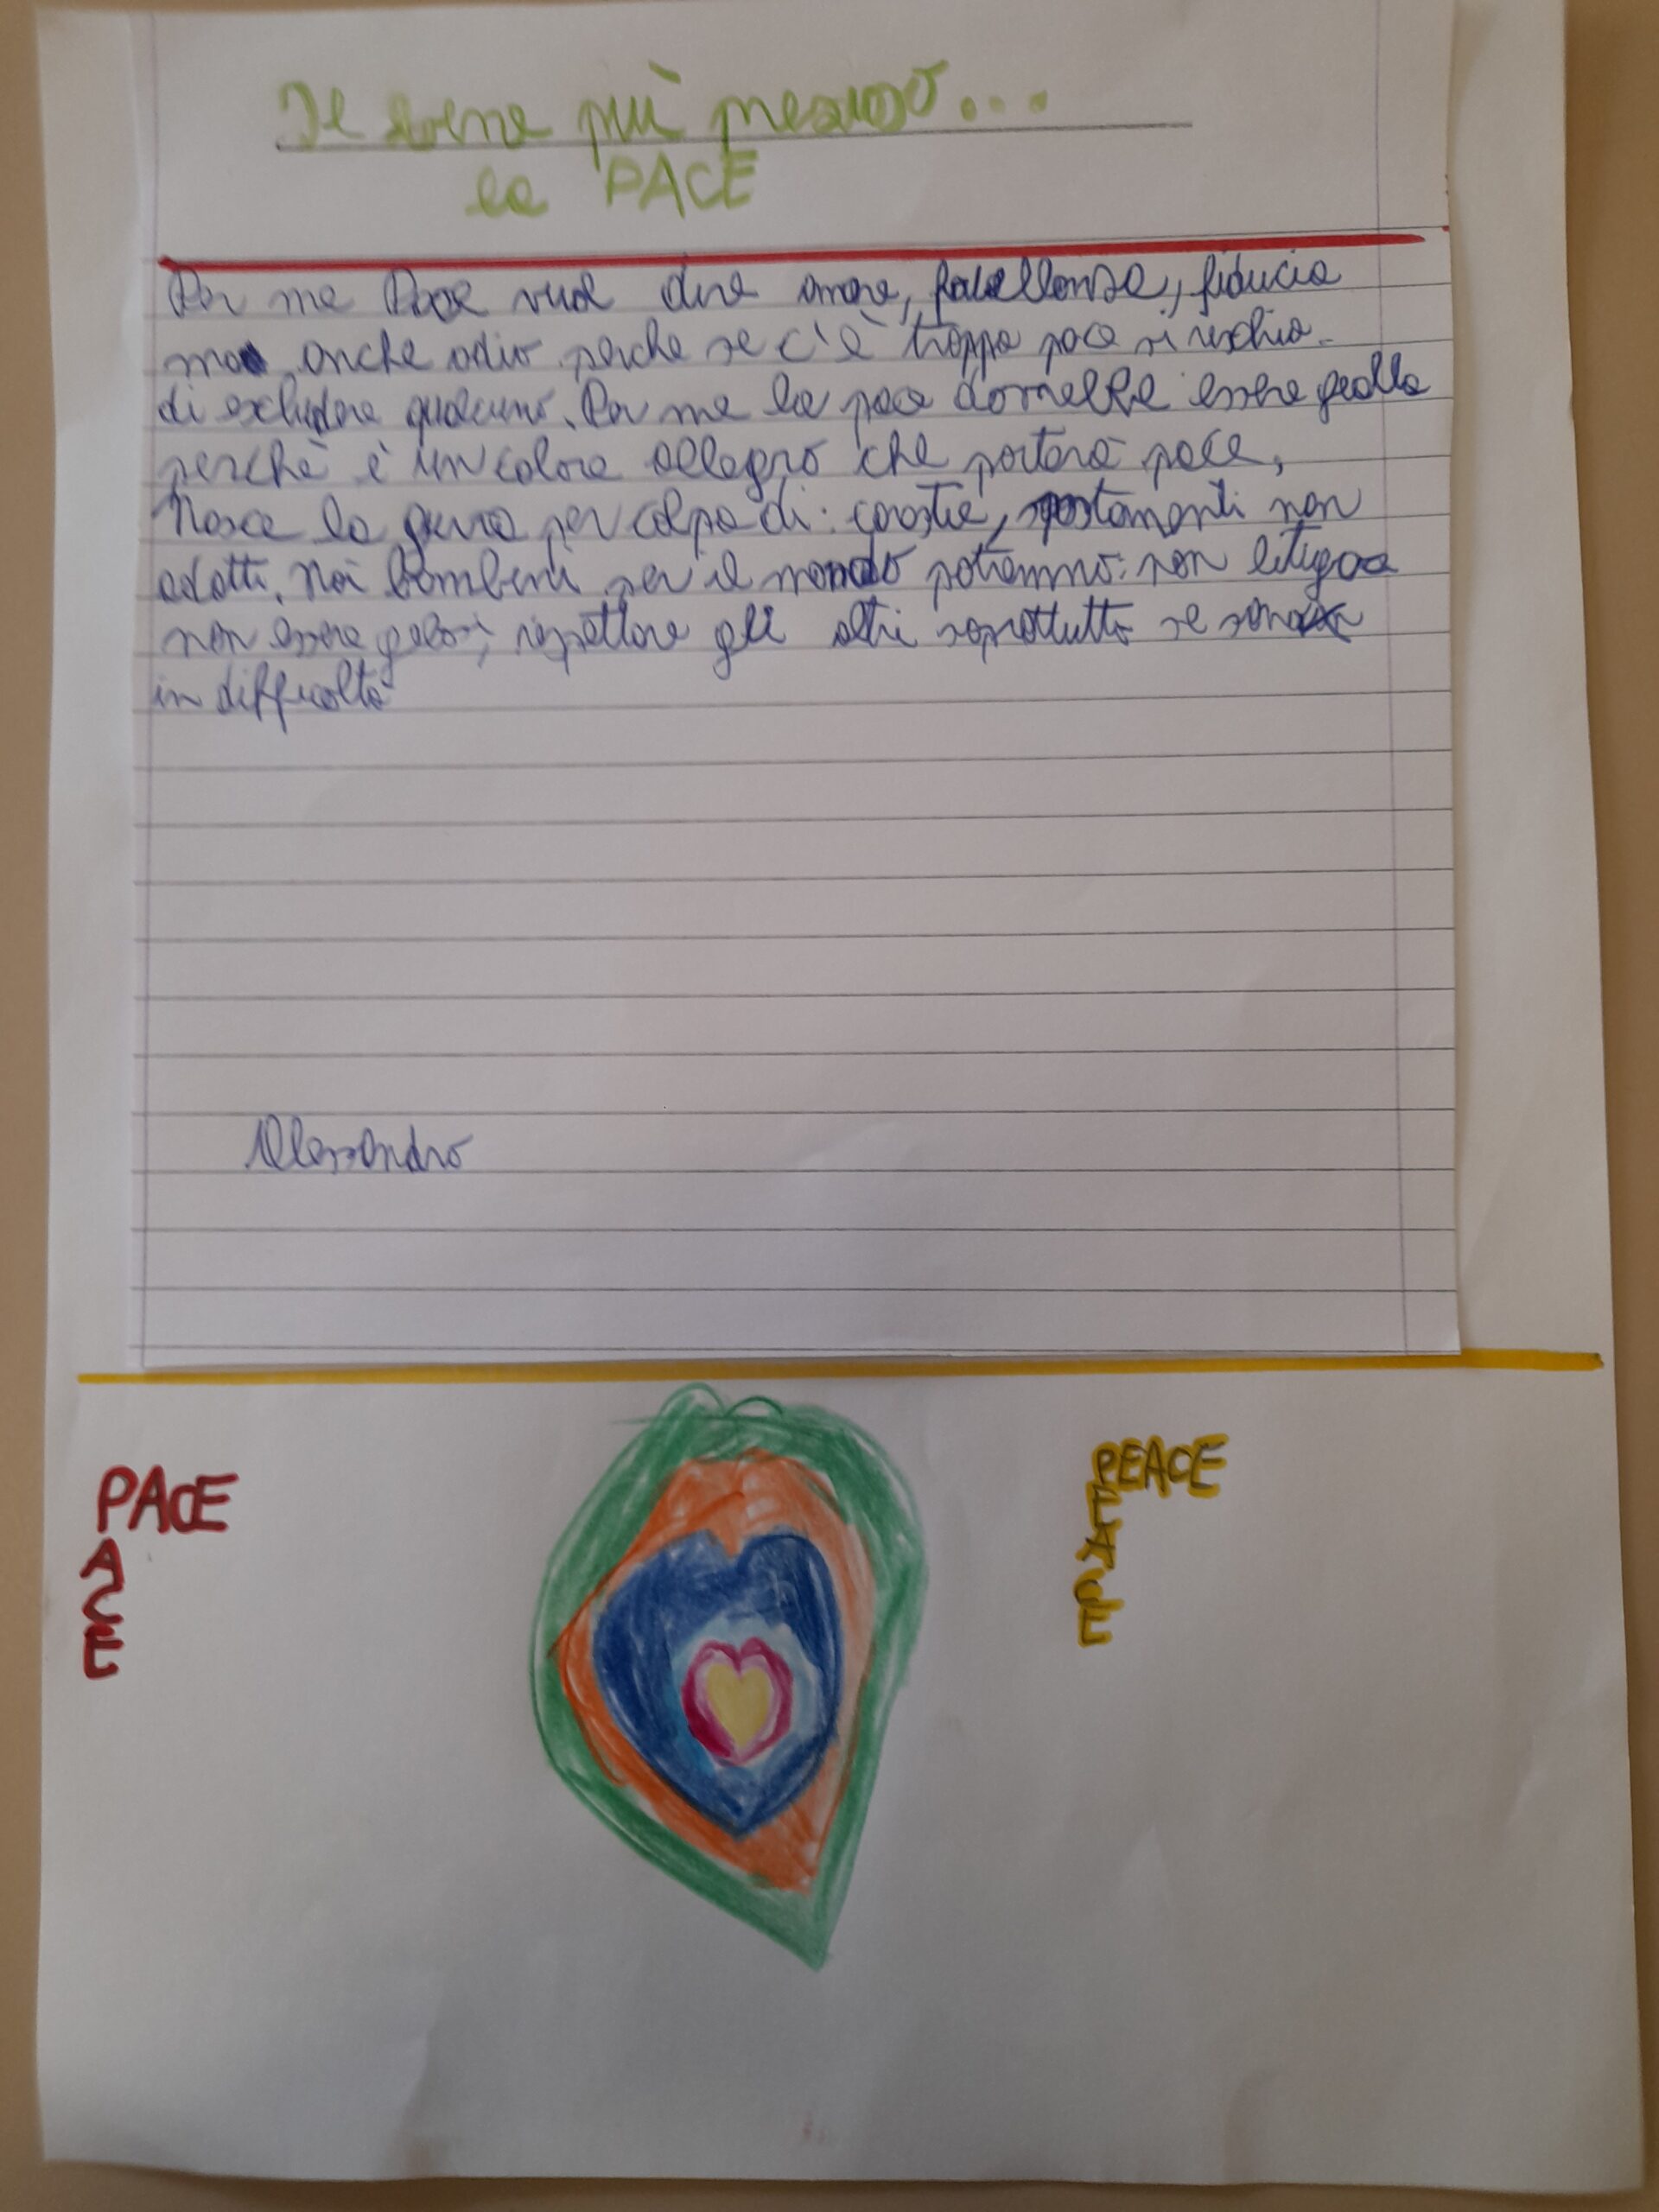 Il bene più prezioso...
la PACE
Per me Pace vuol dire amore, fratellanza, fiducia
ma anche odio perche se c'è troppa pace si rischia
di escludere qualcuno. Per me la pace dorrebbe essere gialla
perchè è un colore allegro che porterà pace,
Nasce la guerra per colpa di: carestie, spostamenti non
adatti. Noi bambini per il mondo potremmo: non litigare
non essere gelosi, rispettare gli altri soprattutto se sono
in difficoltà
Alessandro
PACE
A
C
E
PEACE
E
A
C
E